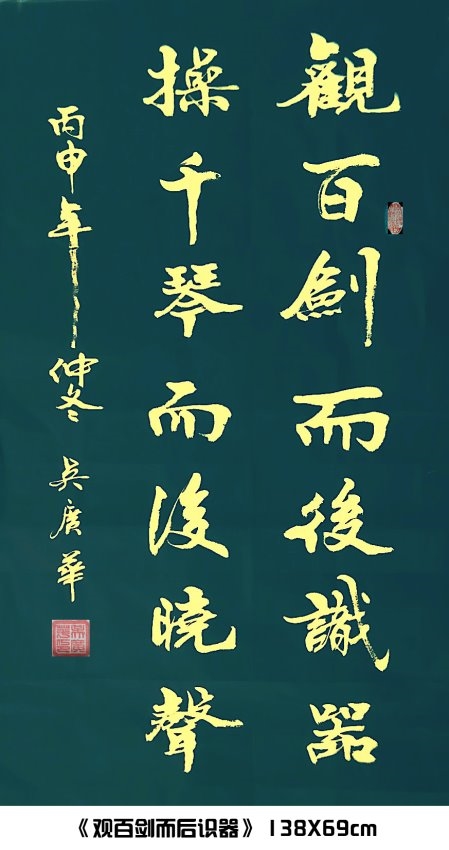 觀百劍而後識器
操千琴而後曉聲
丙申年仲冬 吴廣華
《观百剑而后识器》138X69cm